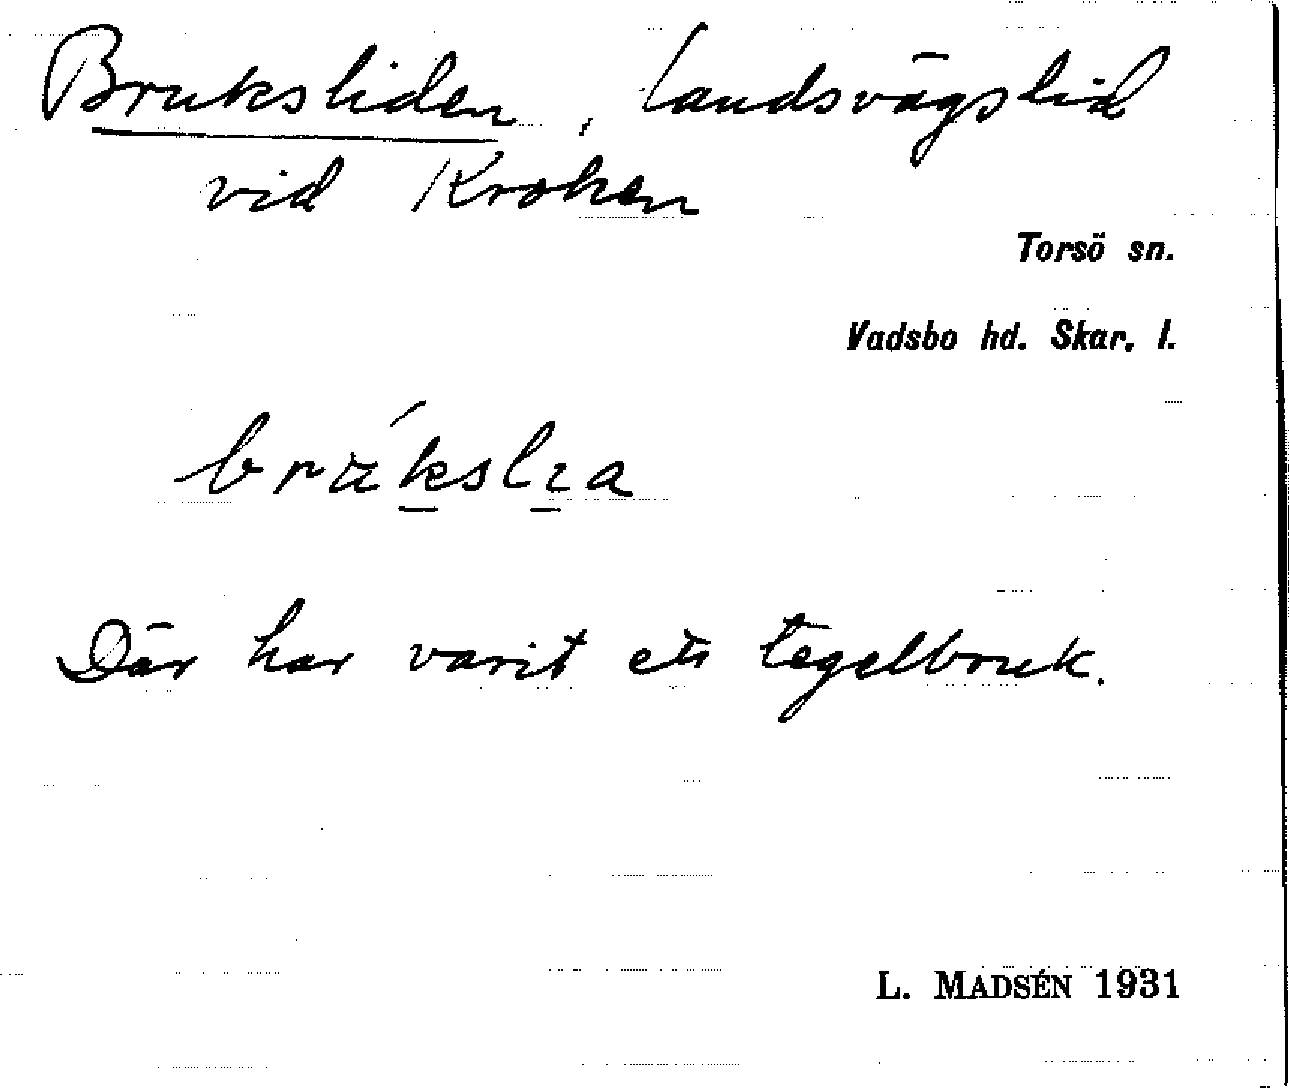 Bruksliden, landsvägslid
vid Kroken
Torsö sn.
Vadsbo hd. Skar. l.
Där har varit ett tegelbruk.
L. MADSÉN 1931